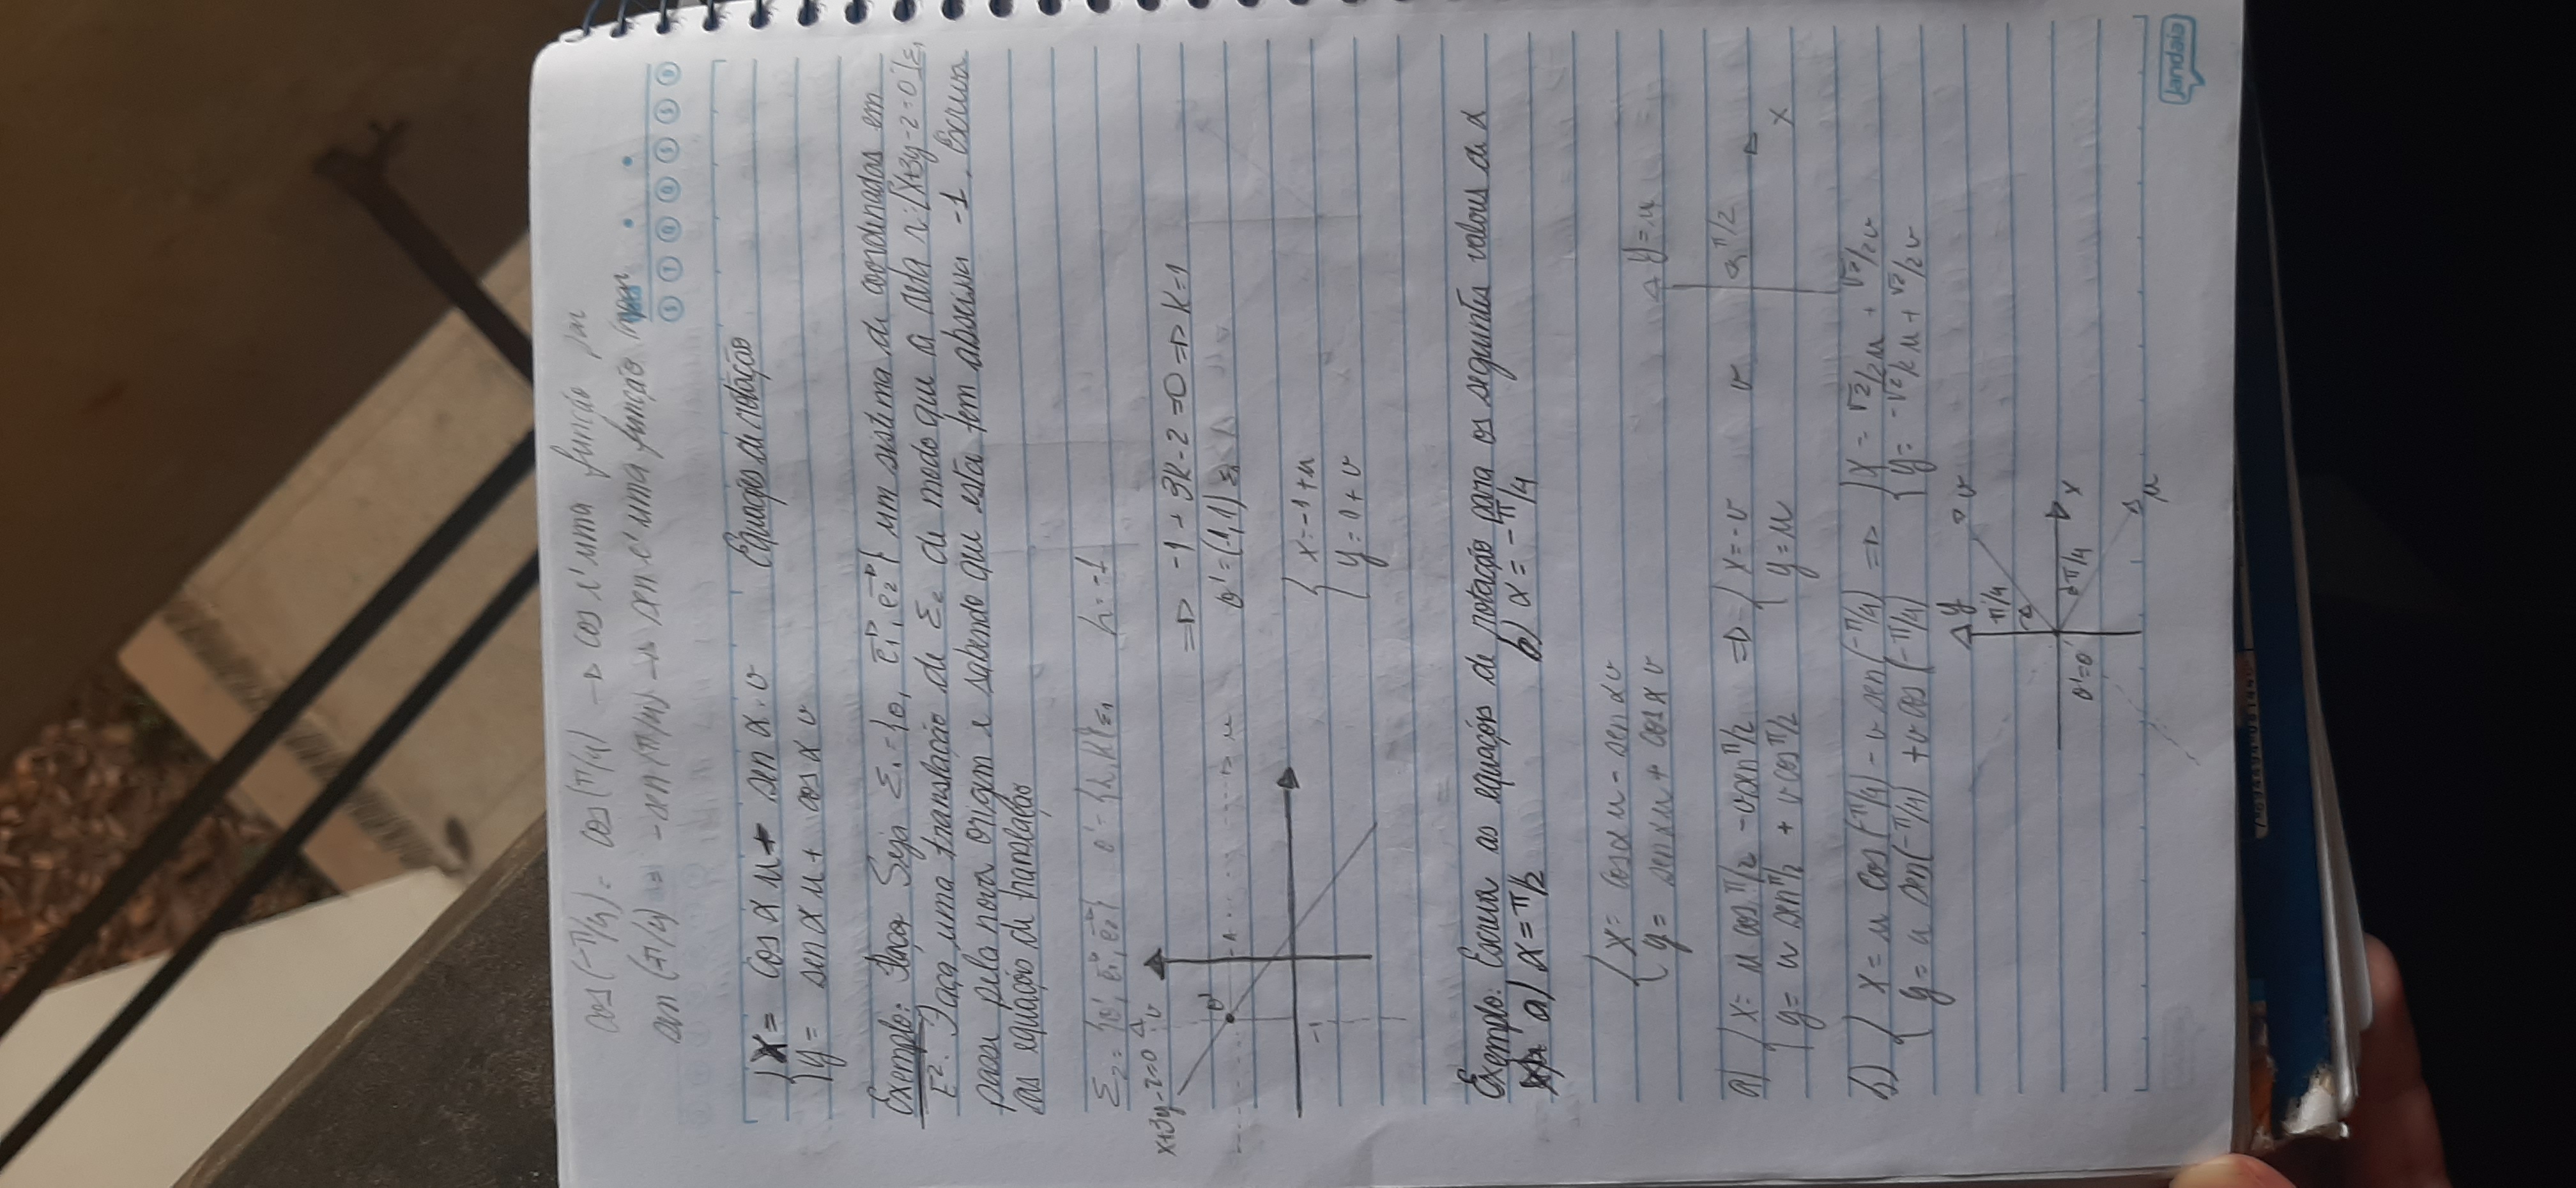 cos(-π/4) = cos(π/4) → cos é uma função par
sen(-π/4) = -sen(π/4) → sen é uma função ímpar
S T Q Q S S D
{ x = cos α u - sen α . v Equações de rotação
{ y = sen α u + cos α v
Exemplo: Seja Σ₁ = {0, e₁, e₂} um sistema de coordenadas em
E². Faça uma translação de Σ de modo que a reta r: [x+3y-2=0]Σ₁
passe pela nova origem e sabendo que esta tem abscissa -1. Escreva
as equações de translação
Σ₂ = {0', e₁, e₂} 0' = {h, k}Σ₁ h = -1
x+3y-2=0 v
⇒ -1 + 3k - 2 = 0 ⇒ k = 1
0' 1 u 0' = (-1, 1)Σ₁
-1
{ x = -1 + u
{ y = 1 + v
Exemplo: Escreva as equações de rotação para os seguintes valores de α
a) α = π/2 b) α = -π/4
{ x = cos α u - sen α v
{ y = sen α u + cos α v
y = u
a) { x = u cos π/2 - v sen π/2 ⇒ { x = -v v π/2
{ y = u sen π/2 + v cos π/2 { y = u x
b) { x = u cos(-π/4) - v sen(-π/4) ⇒ { x = √2/2 u + √2/2 v
{ y = u sen(-π/4) + v cos(-π/4) { y = -√2/2 u + √2/2 v
y v
π/4
0'=0 π/4 x
u
jandaia